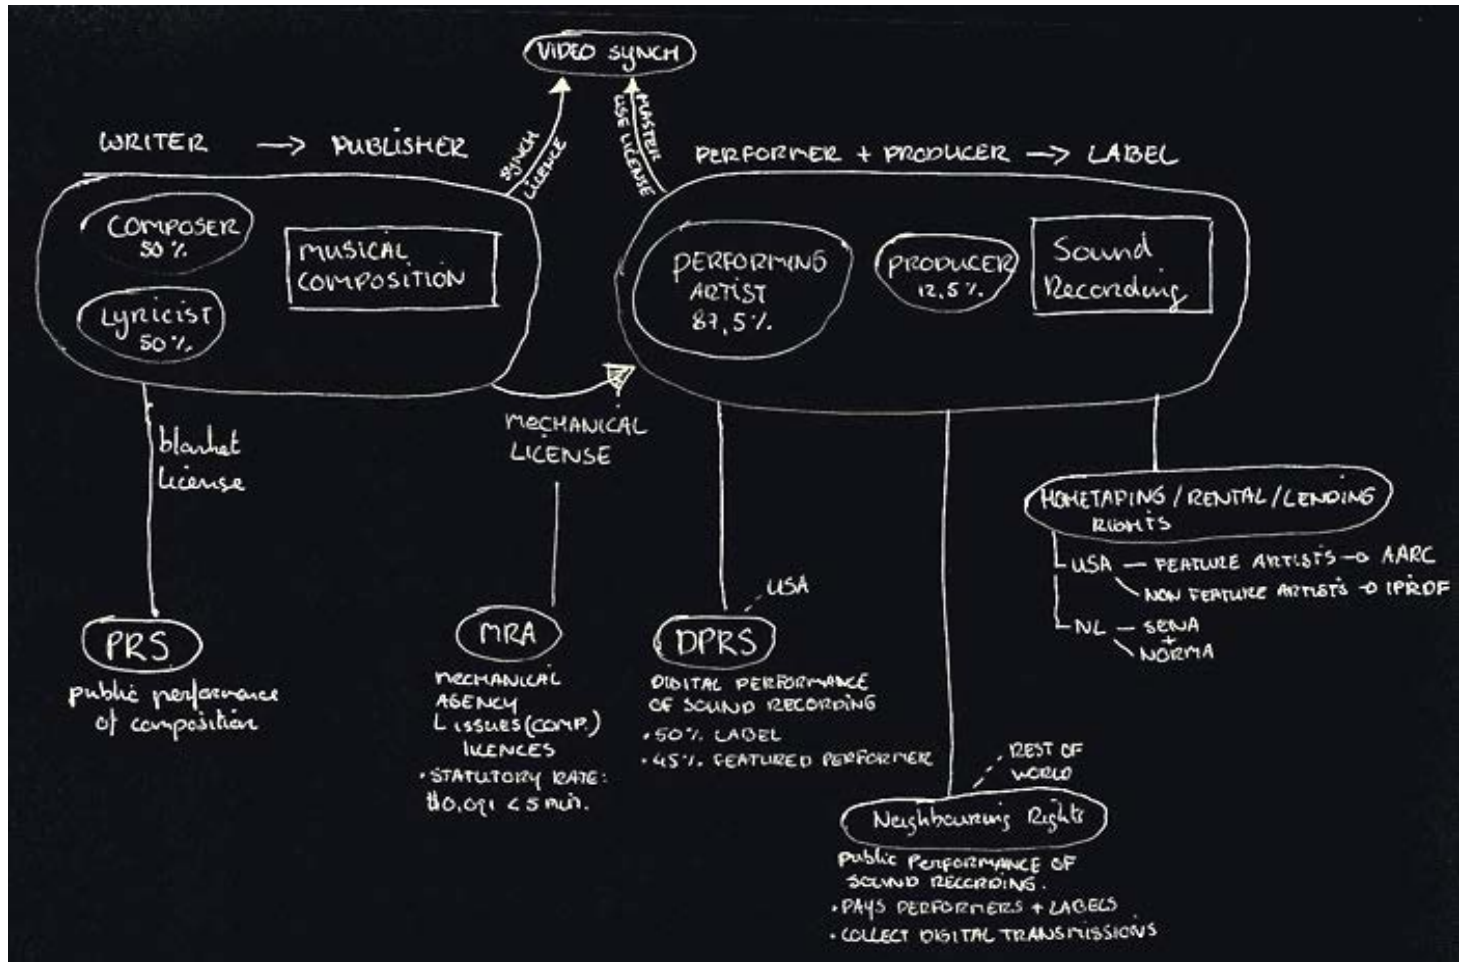 VIDEO SYNCH
SYNCH
LICENCE
MASTER
USE LICENSE
WRITER → PUBLISHER
PERFORMER + PRODUCER → LABEL
COMPOSER
50%
LYRICIST
50%
MUSICAL
COMPOSITION
PERFORMING
ARTIST
87,5%
PRODUCER
12,5%
Sound
Recording
blanket
license
MECHANICAL
LICENSE
HOMETAPING / RENTAL / LENDING
RIGHTS
USA — FEATURE ARTISTS → AARC
NON FEATURE ARTISTS → IPROF
NL — SENA
+
NORMA
PRS
public performance
of composition
MRA
MECHANICAL
AGENCY
L ISSUES (COMP.)
LICENCES
• STATUTORY RATE:
$0,091 < 5 min.
USA
DPRS
DIGITAL PERFORMANCE
OF SOUND RECORDING
• 50% LABEL
• 45% FEATURED PERFORMER
REST OF
WORLD
Neighbouring Rights
public PERFORMANCE OF
SOUND RECORDING.
• PAYS PERFORMERS + LABELS
• COLLECT DIGITAL TRANSMISSIONS